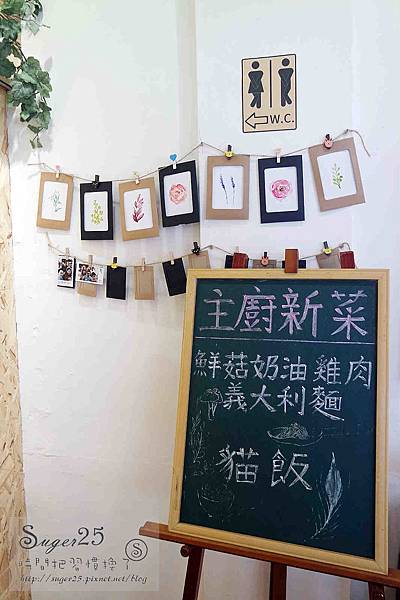 ←W.C.
主廚新菜
鮮菇奶油雞肉
義大利麵
貓飯
Suger25
時間把習慣換了
http://suger25.pixnet.net/blog